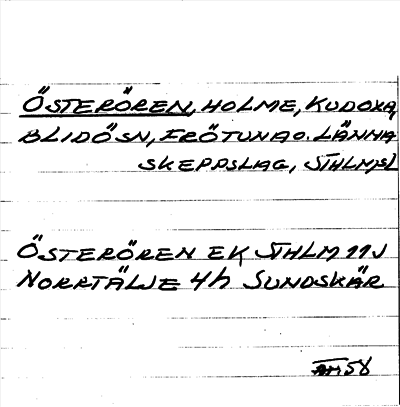 ÖSTERÖREN, HOLME, KUDOXA,
BLIDÖSN, FRÖTUNA O. LÄNNA
SKEPPSLAG, STHLMSL
ÖSTERÖREN EK STHLM 11J
NORRTÄLJE 4h SUNDSKÄR
AM58